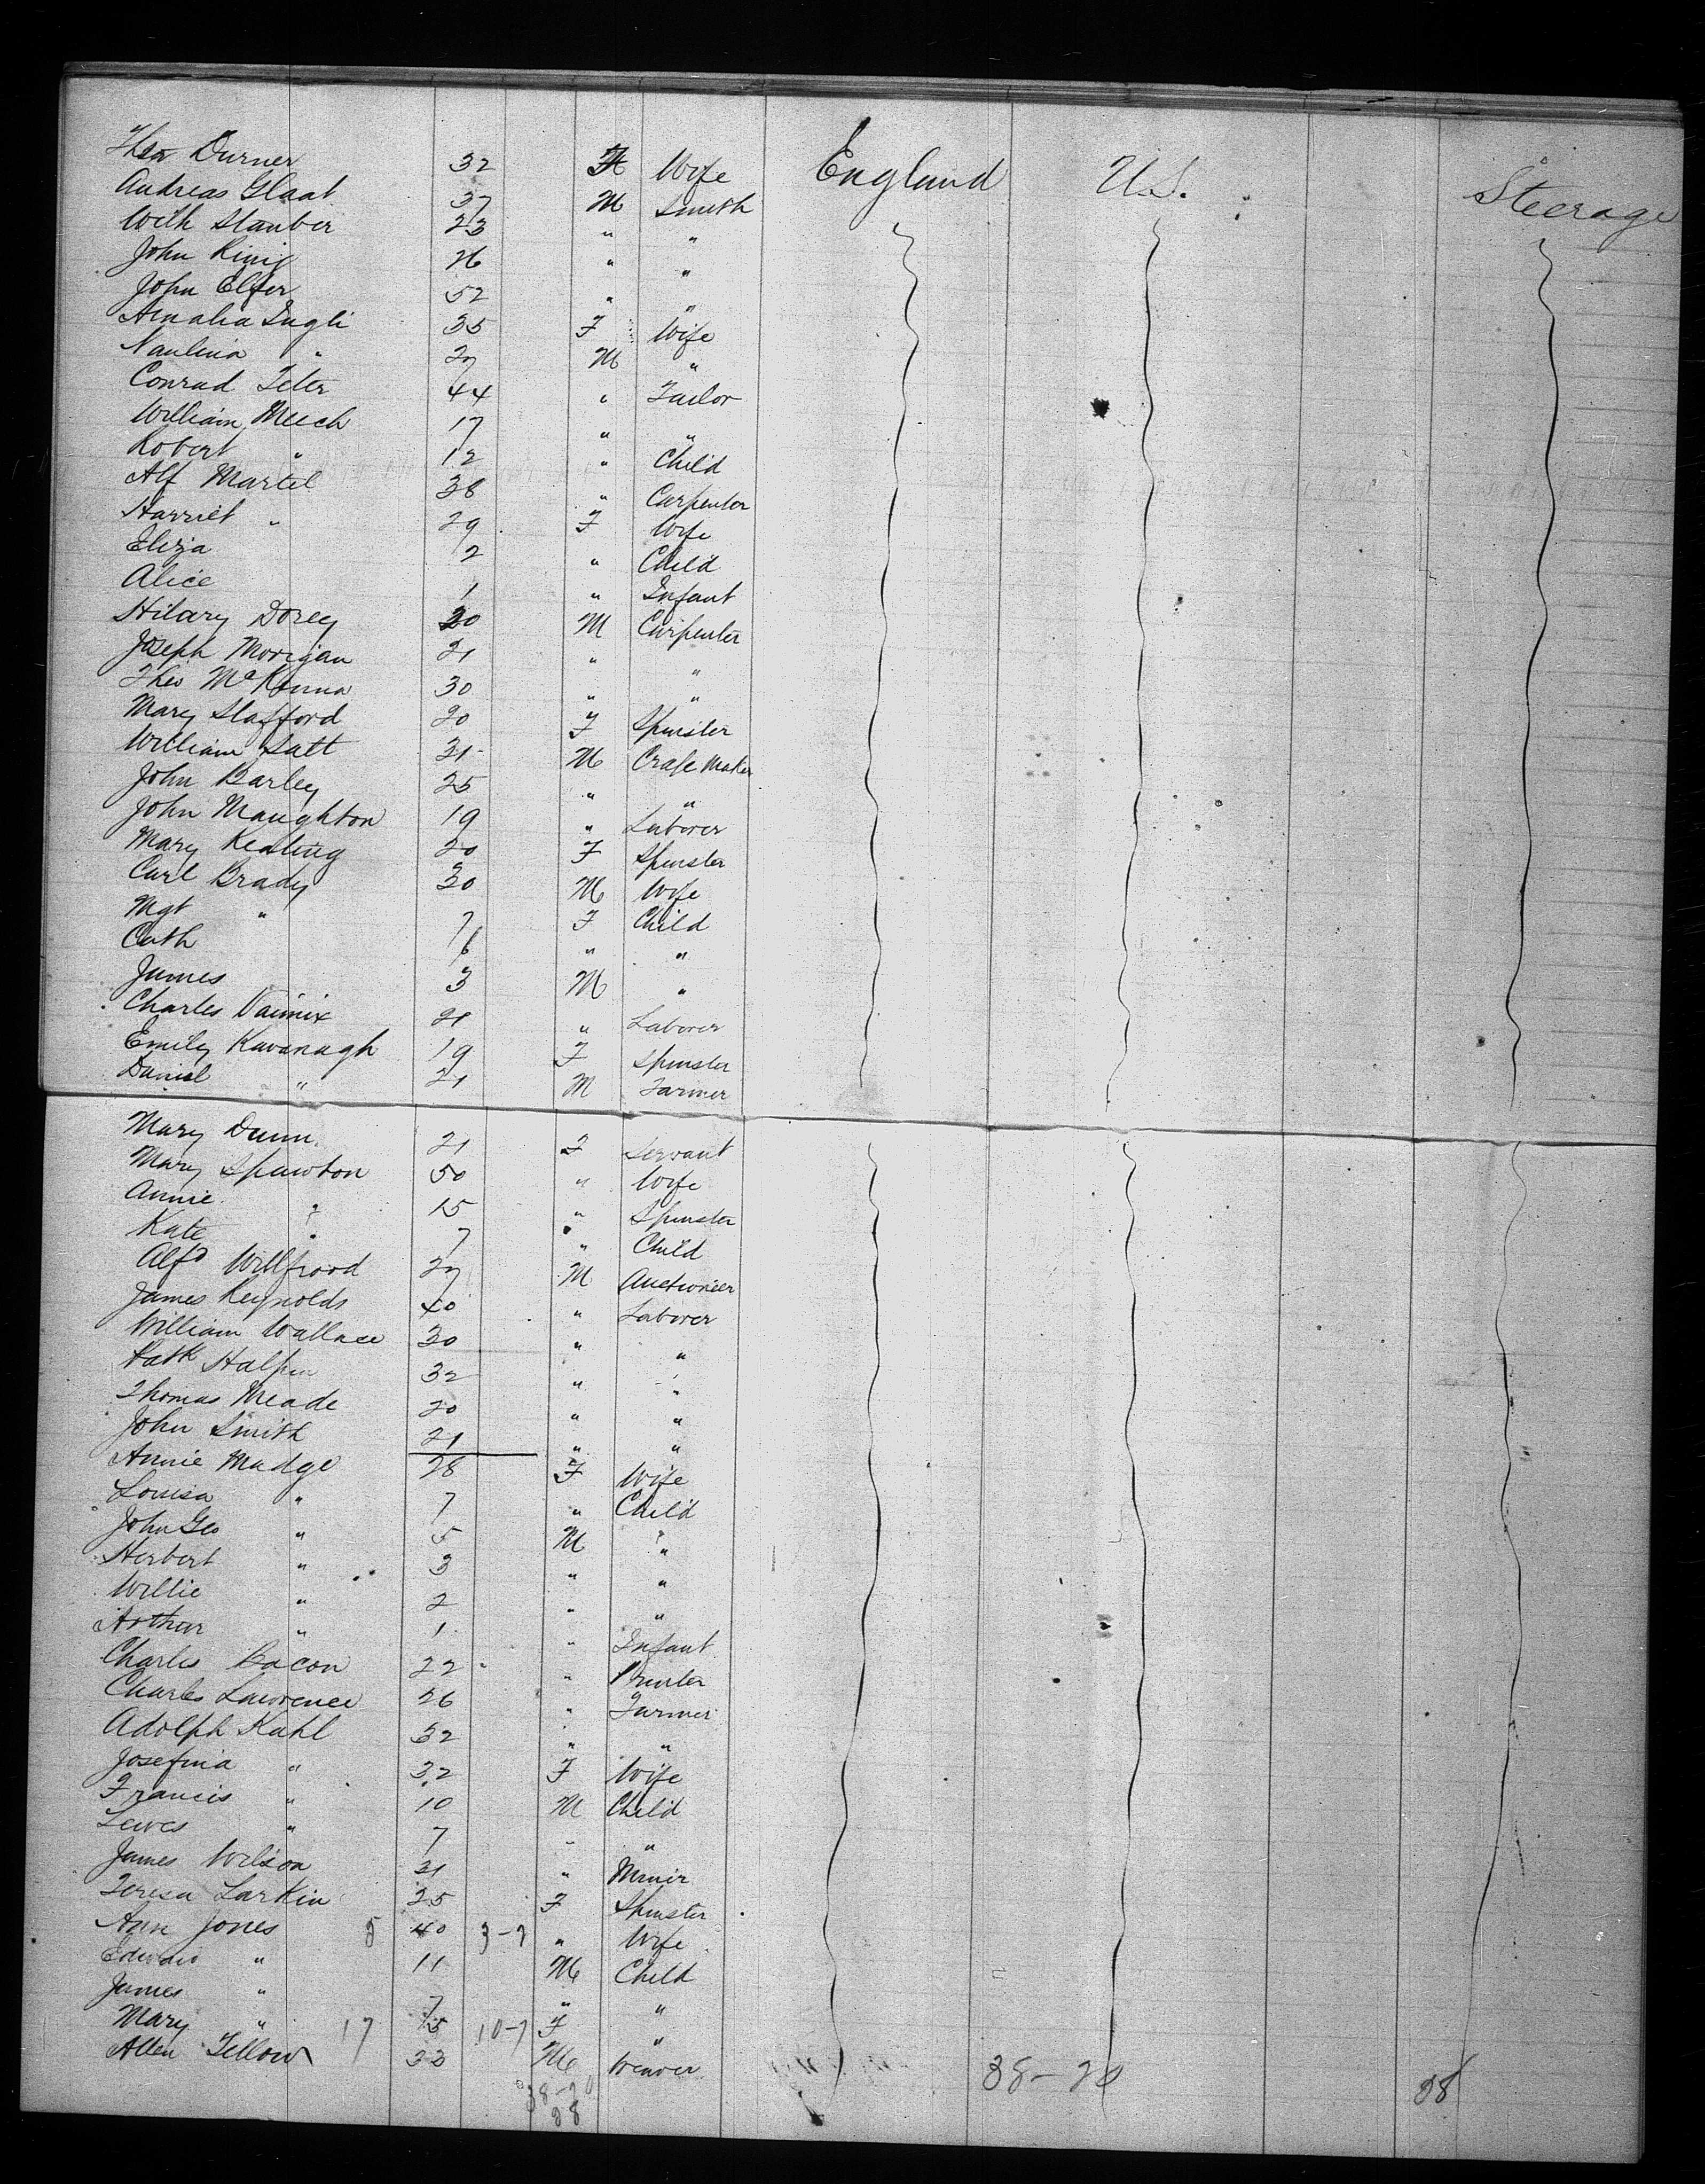 Thea Durner 32 F Wife England U.S. Steerage
Andreas Glaat 37 M Smith
Wilh Stauber 23 " "
John Kinig 26 " "
John Elfer 52 " "
Amalia Zugli 35 F Wife
Naulina " 27 M "
Conrad Teler 44 " Tailor
William Meech 17 " "
Robert " 12 " Child
Alf Martel 38 " Carpenter
Harriet " 29 F Wife
Eliza 2 " Child
Alice 1 " Infant
Hilary Dorey 20 M Carpenter
Joseph Morrigan 21 " "
Theo McKenna 30 " "
Mary Stafford 20 F Spinster
William Satt 31 M Crape Maker
John Barley 25 " "
John Maughton 19 " Laborer
Mary Keating 20 F Spinster
Carl Brady 30 M Wife
Mgt " 7 F Child
Cath 6 " "
James 3 M "
Charles Vaimix 21 " Laborer
Emily Kavanagh 19 F Spinster
Daniel " 21 M Farmer
Mary Dunn 21 F Servant
Mary Spawton 50 " Wife
Annie " 15 " Spinster
Kate " 7 " Child
Alfd Willfrood 27 M Auctioneer
James Reynolds 40 " Laborer
William Wallace 30 " "
Patk Halpin 32 " "
Thomas Meade 20 " "
John Smith 21 " "
Annie Madge 28 F Wife
Louisa " 7 " Child
John Geo " 5 M "
Herbert " 3 " "
Willie " 2 " "
Arthur " 1 " Infant
Charles Bacon 22 " Printer
Charles Lawrence 26 " Farmer
Adolph Kahl 32 " "
Josefina " 32 F Wife
Francis " 10 M Child
Lewes " 7 " "
James Wilson 31 " Minir
Teresa Larkin 25 F Spinster
Ann Jones 5 40 3-7 " Wife
Edward " 11 M Child
James " 7 " "
Mary " 17 5 10-7 F "
Allen Tellow 33 M Weaver
38-20 38-20 58
58